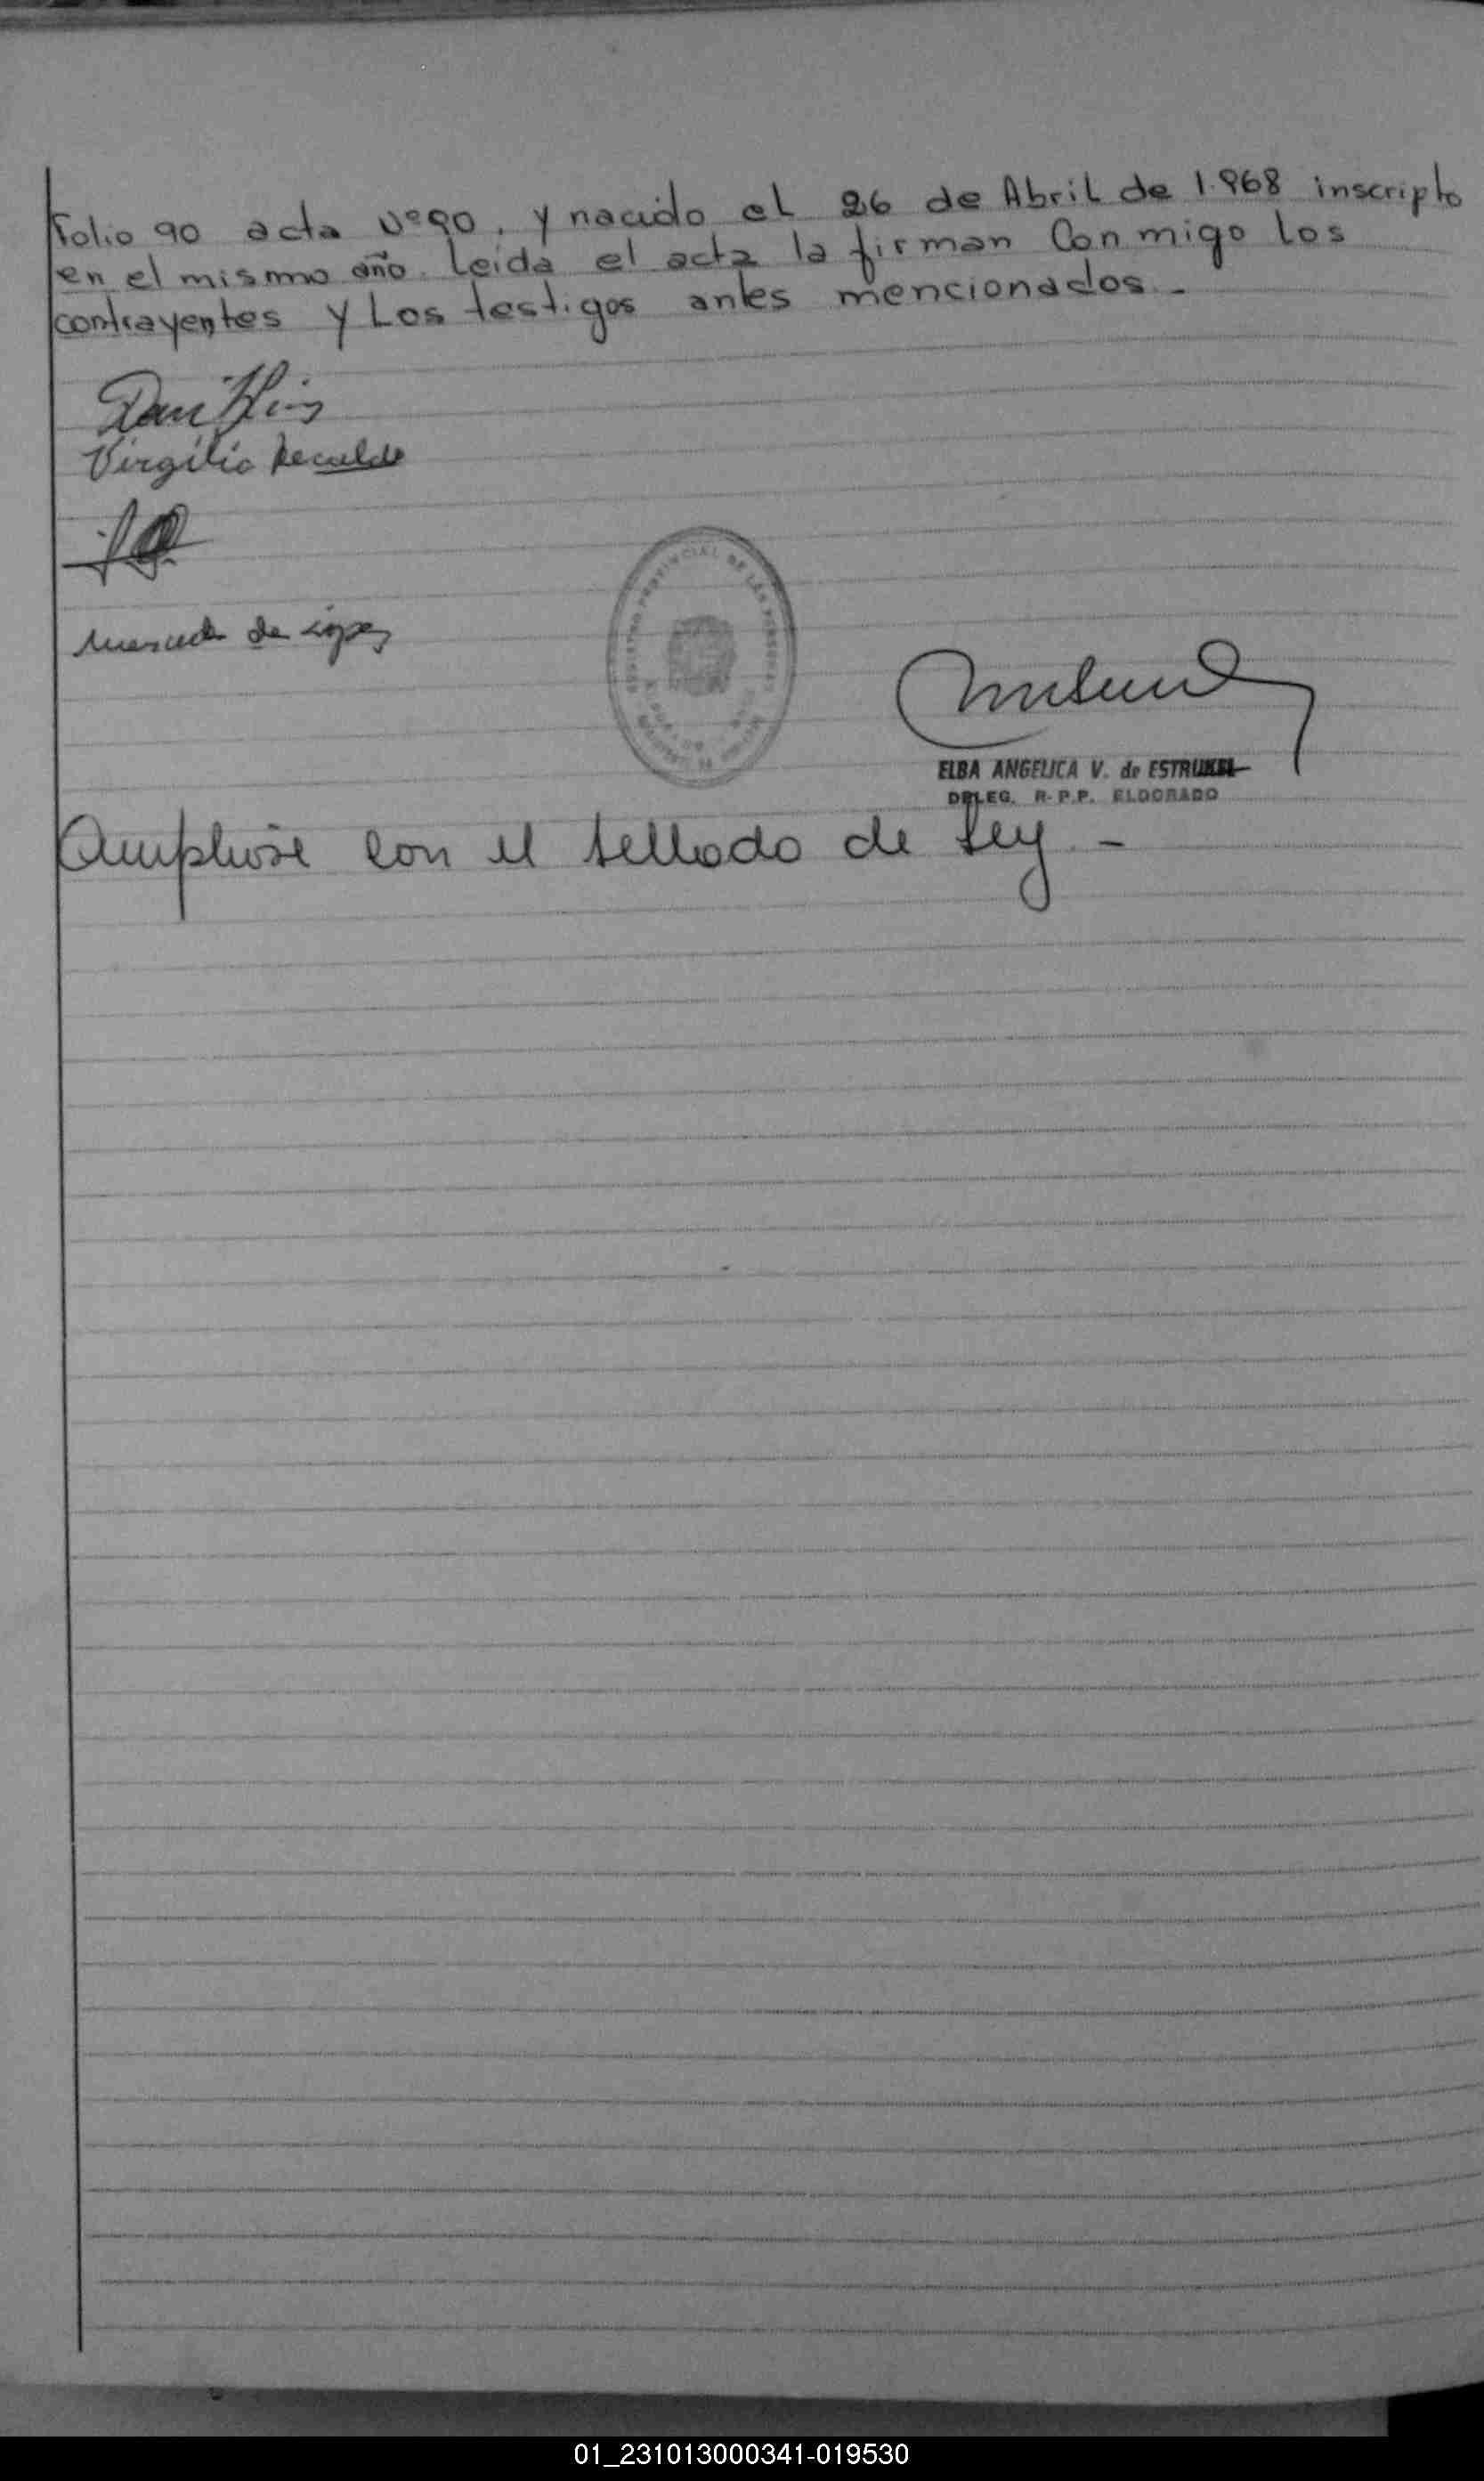 Folio 90 acta Nº90. y nacido el 26 de Abril de 1.968 inscripto
en el mismo año. Leida el acta la firman Conmigo los
contrayentes y Los testigos antes mencionados.-
Virgilio Recalde
de López
REGISTRO PROVINCIAL DE LAS PERSONAS
ELBA ANGELICA V. de ESTRUKEL
DELEG. R.P.P. ELDORADO
con el sellado de Ley -
01_231013000341-019530